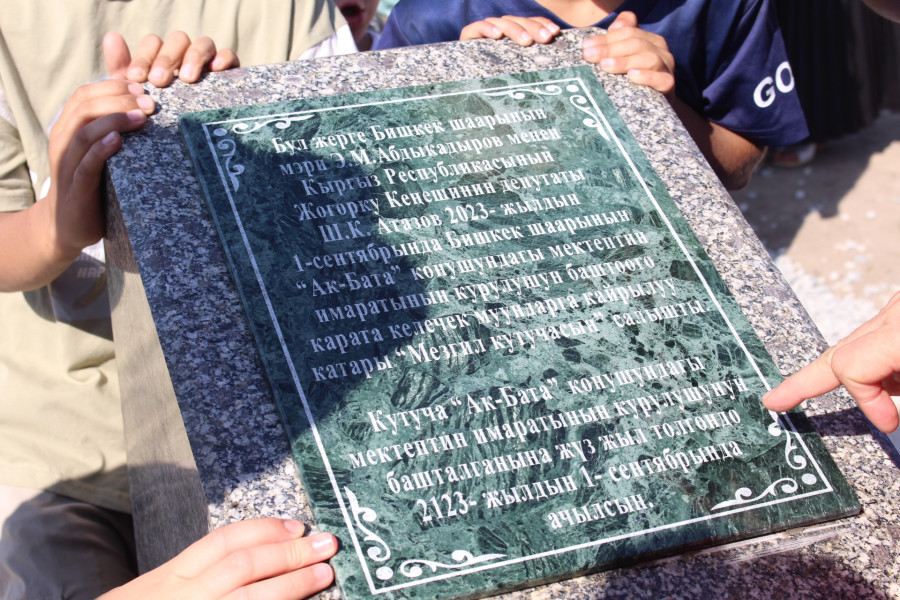 Бул жерге Бишкек шаарынын
мэри Э.М.Абдыкадыров менен
Кыргыз Республикасынын
Жогорку Кенешинин депутаты
Ш.К. Атазов 2023- жылдын
1-сентябрында Бишкек шаарынын
“Ак-Бата” конушундагы мектептин
имаратынын курулушун баштоого
карата келечек муундарга кайрылуу
катары “Мезгил кутучасын” салышты.
Кутуча “Ак-Бата” конушундагы
мектептин имаратынын курулушунун
башталганына жүз жыл толгондо
2123- жылдын 1- сентябрында
ачылсын.
GO